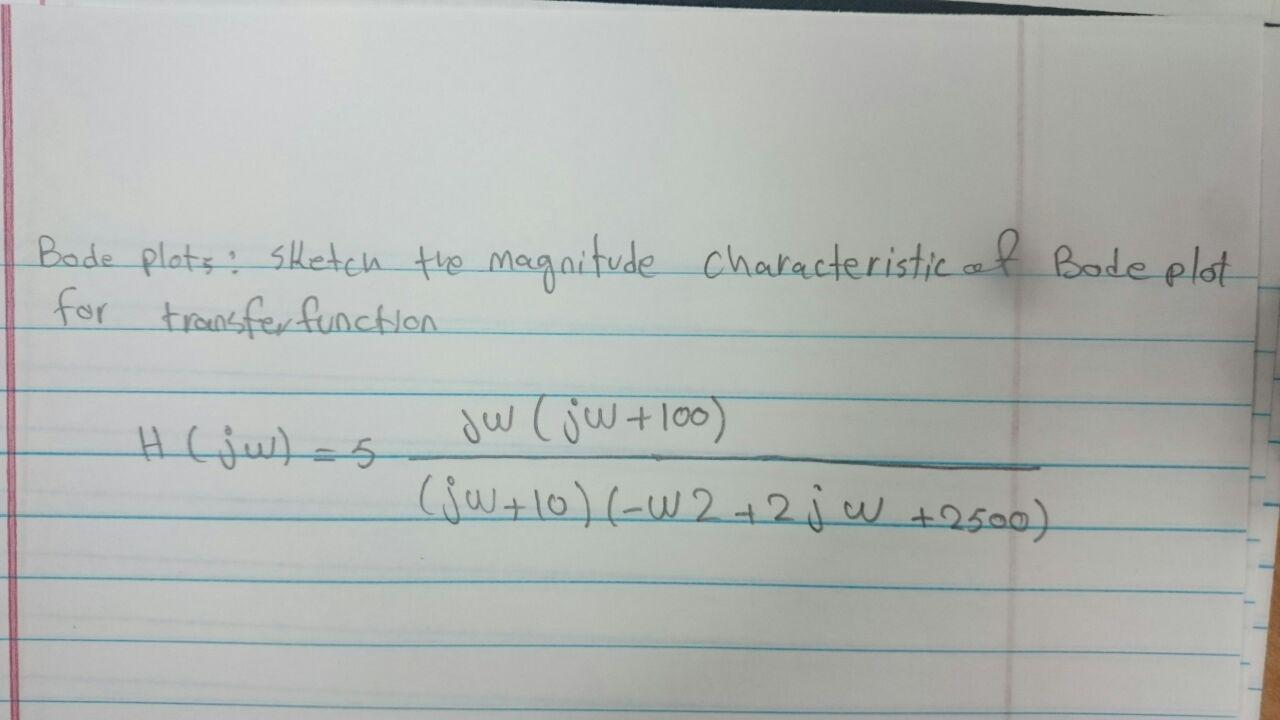 Bode plots: sketch the magnitude characteristic of Bode plot
for transfer function
H (jw) = 5 jw (jw+100)
(jw+10) (-w2 +2jw +2500)